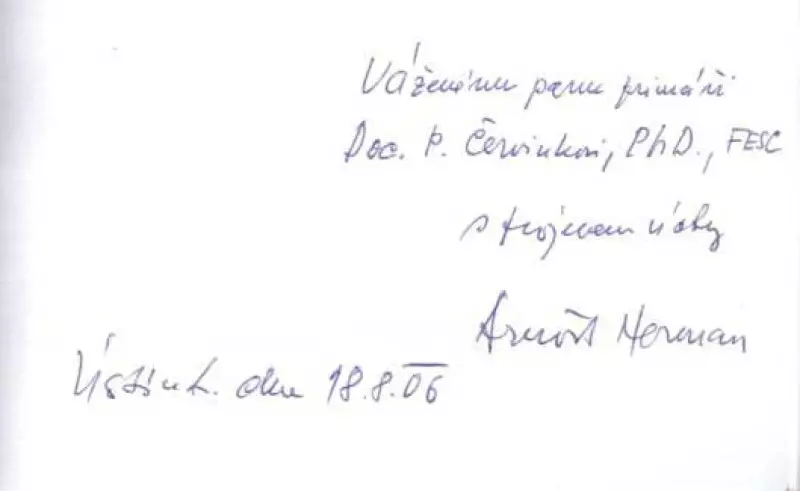 Váženému panu primáři
Doc. P. Červinkovi, PhD., FESC
s projevem úcty
Arnošt Herman
Ústí n. L. dne 18.8.06